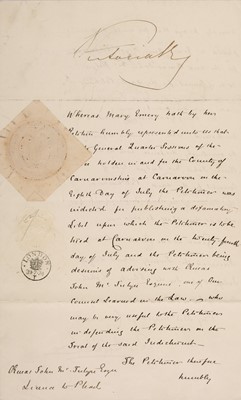 Victoria R
Whereas Mary Emery hath by her
Petition humbly represented unto Us that
General Quarter Sessions of the
holden in and for the County of
Carnarvonshire at Carnarvon on the
Eighth Day of July the Petitioner was
indicted for publishing a defamatory
Libel upon which the Petitioner is to be
tried at Carnarvon on the twenty
day of July and the Petitioner being
desirous of advising with
John Mc Esquire one of Our
Counsel Learned in the Law, who
may be very useful to the Petitioner
in defending the Petitioner on the
Trial of the said Indictment.
The Petitioner therefore
humbly
John Mc Esqre
Licence to Plead
LONDON